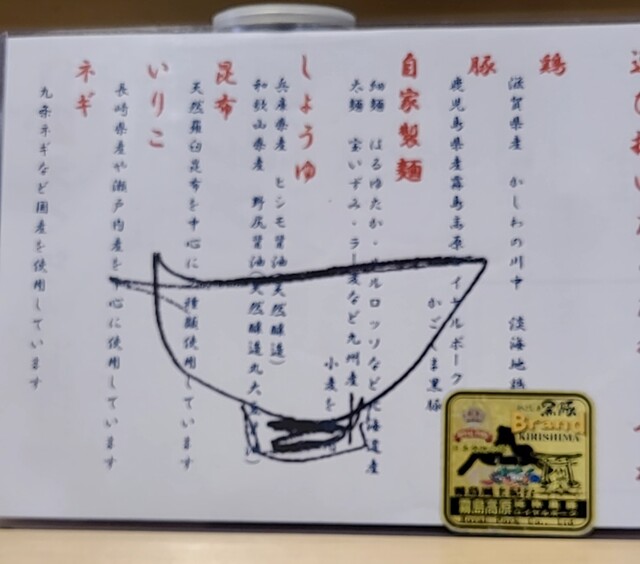 鶏
滋賀県産 かしわの川中 淡海地鶏
豚
鹿児島県産霧島高原ロイヤルポーク
かごしま黒豚
自家製麺
細麺 はるゆたか・キルロッソなど北海道産
太麺 宝いずみ・ラー麦など九州産
小麦を
しょうゆ
兵庫県産 ヒシモ醤油(天然醸造)
和歌山県産 野尻醤油(天然醸造丸大豆醤油)
昆布
天然羅臼昆布を中心に 種類使用しています
いりこ
長崎県産や瀬戸内産を中心に使用しています
ネギ
九条ネギなど国産を使用しています
黒豚
Brand
KIRISHIMA
霧島風土紀行
霧島高原